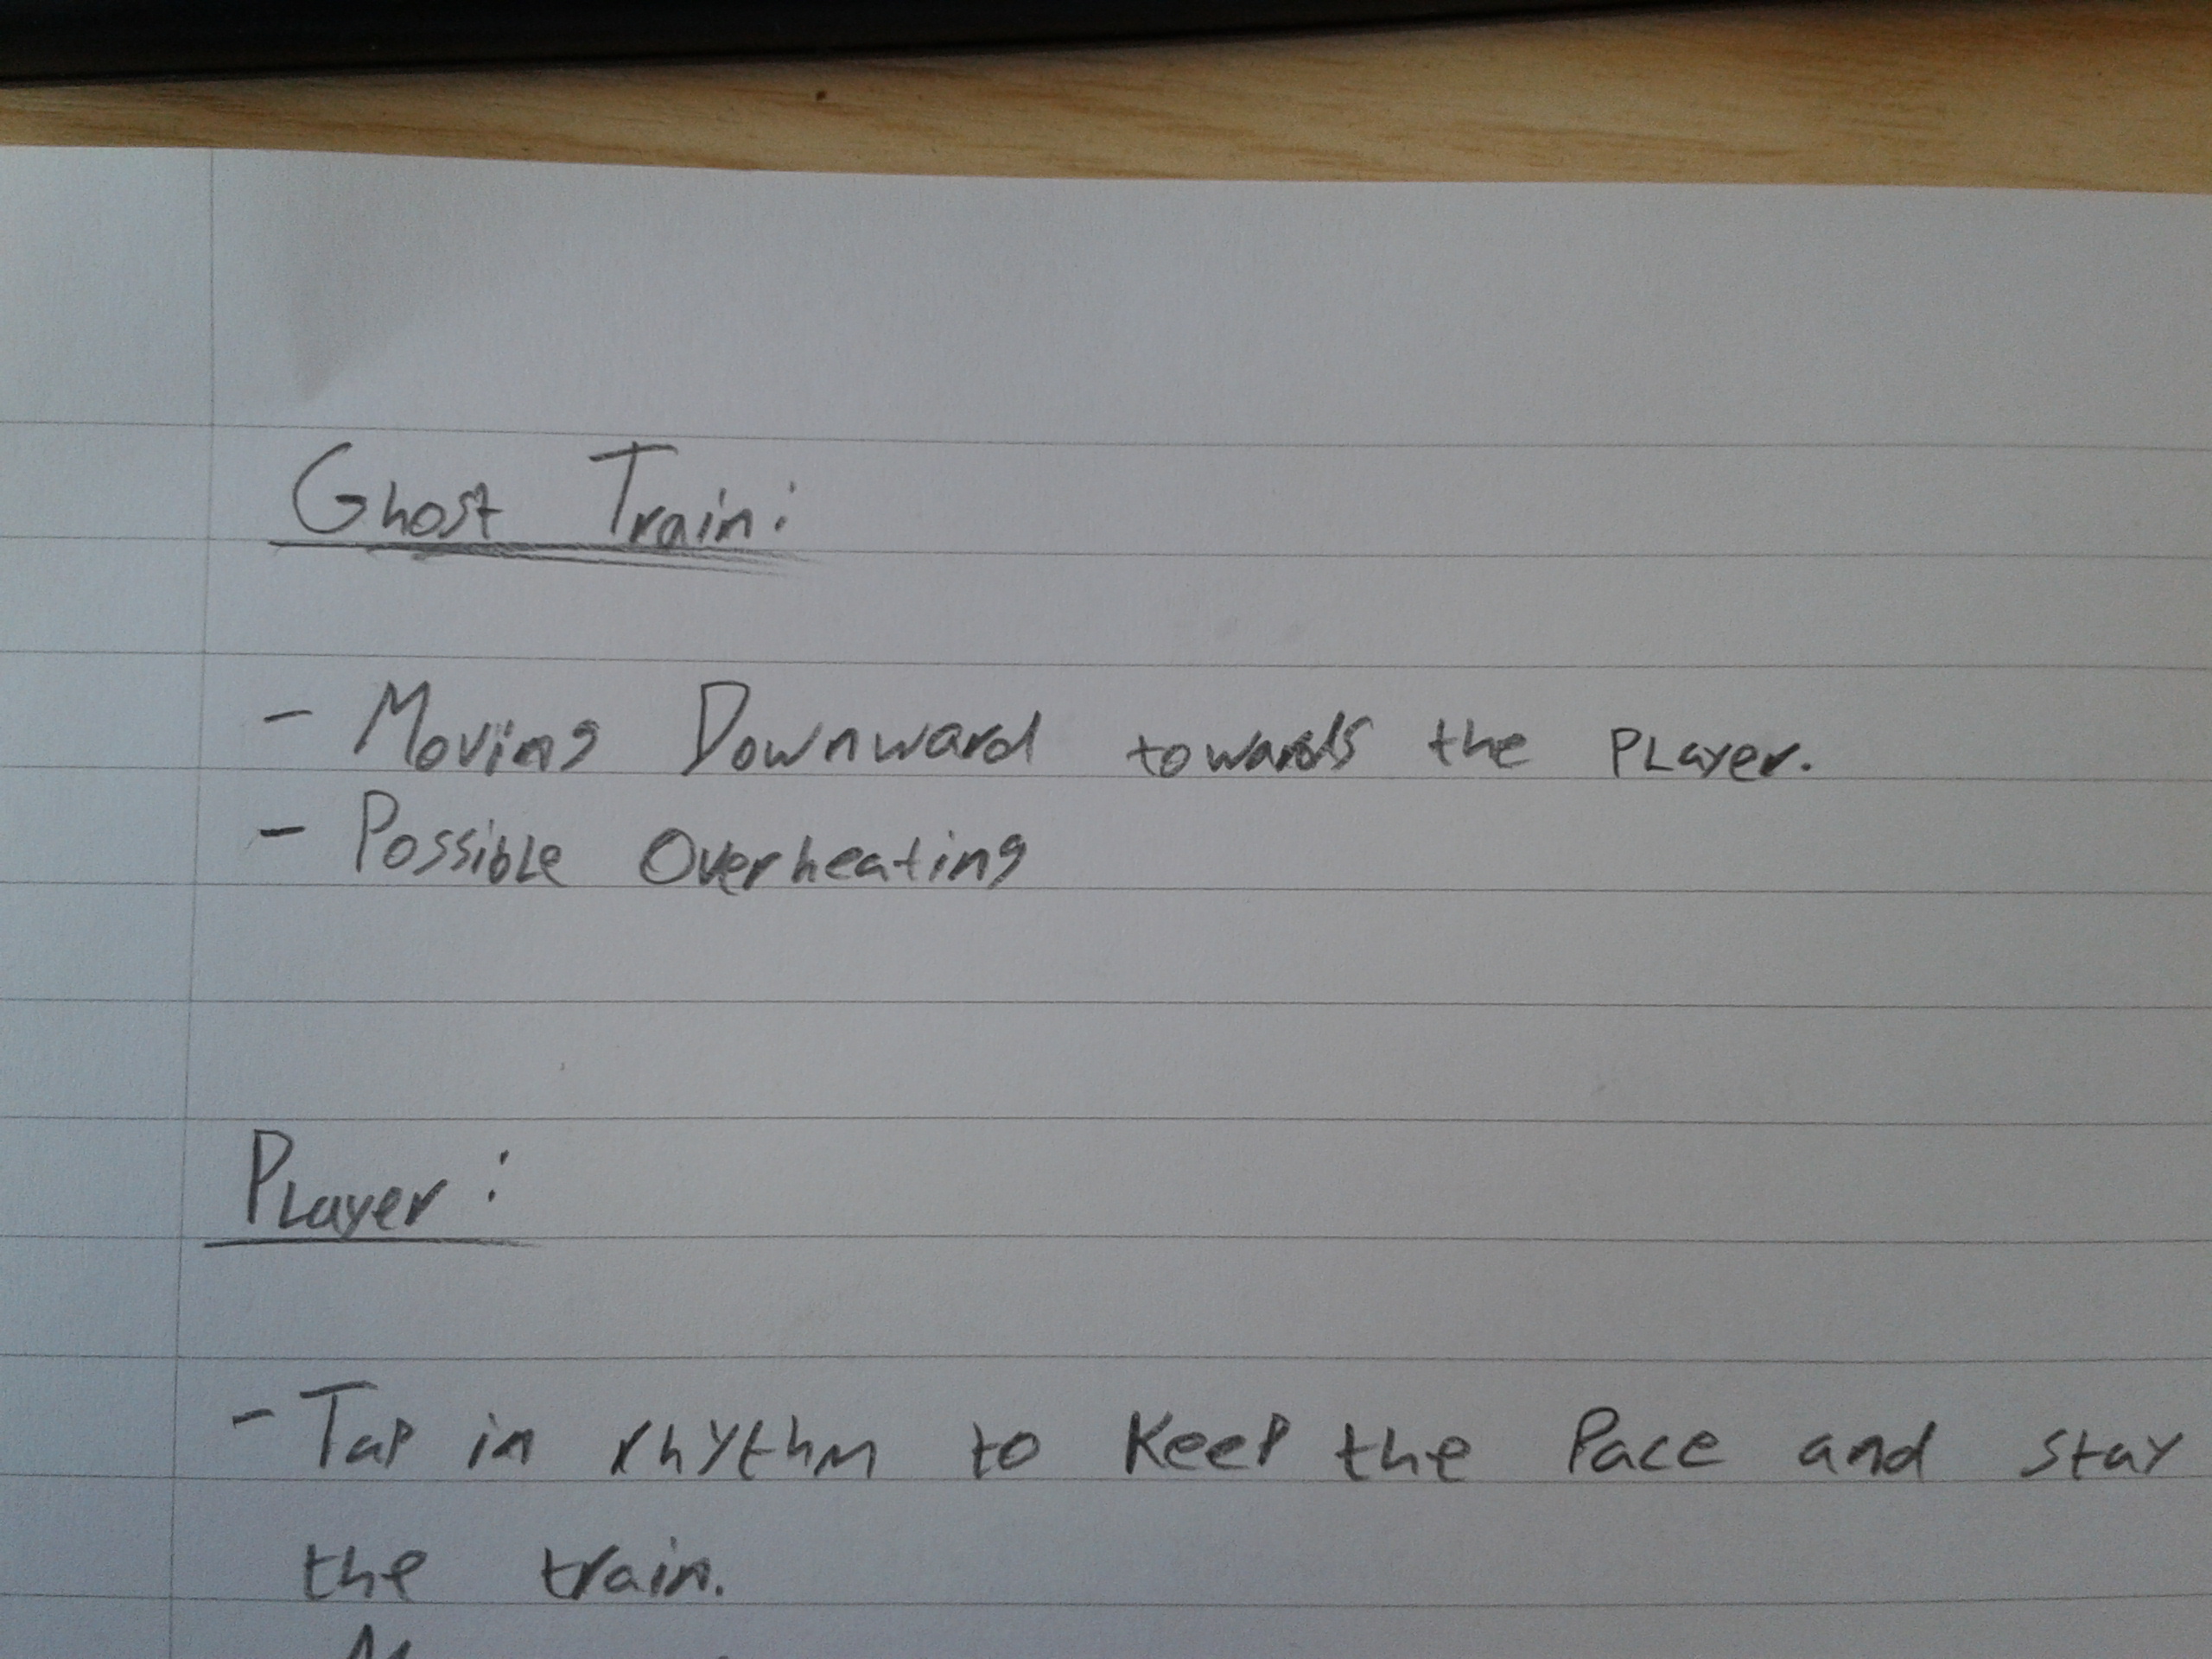 Ghost Train:
- Moving Downward towards the Player.
- Possible Overheating
Player:
- Tap in rhythm to keep the Pace and stay
the train.